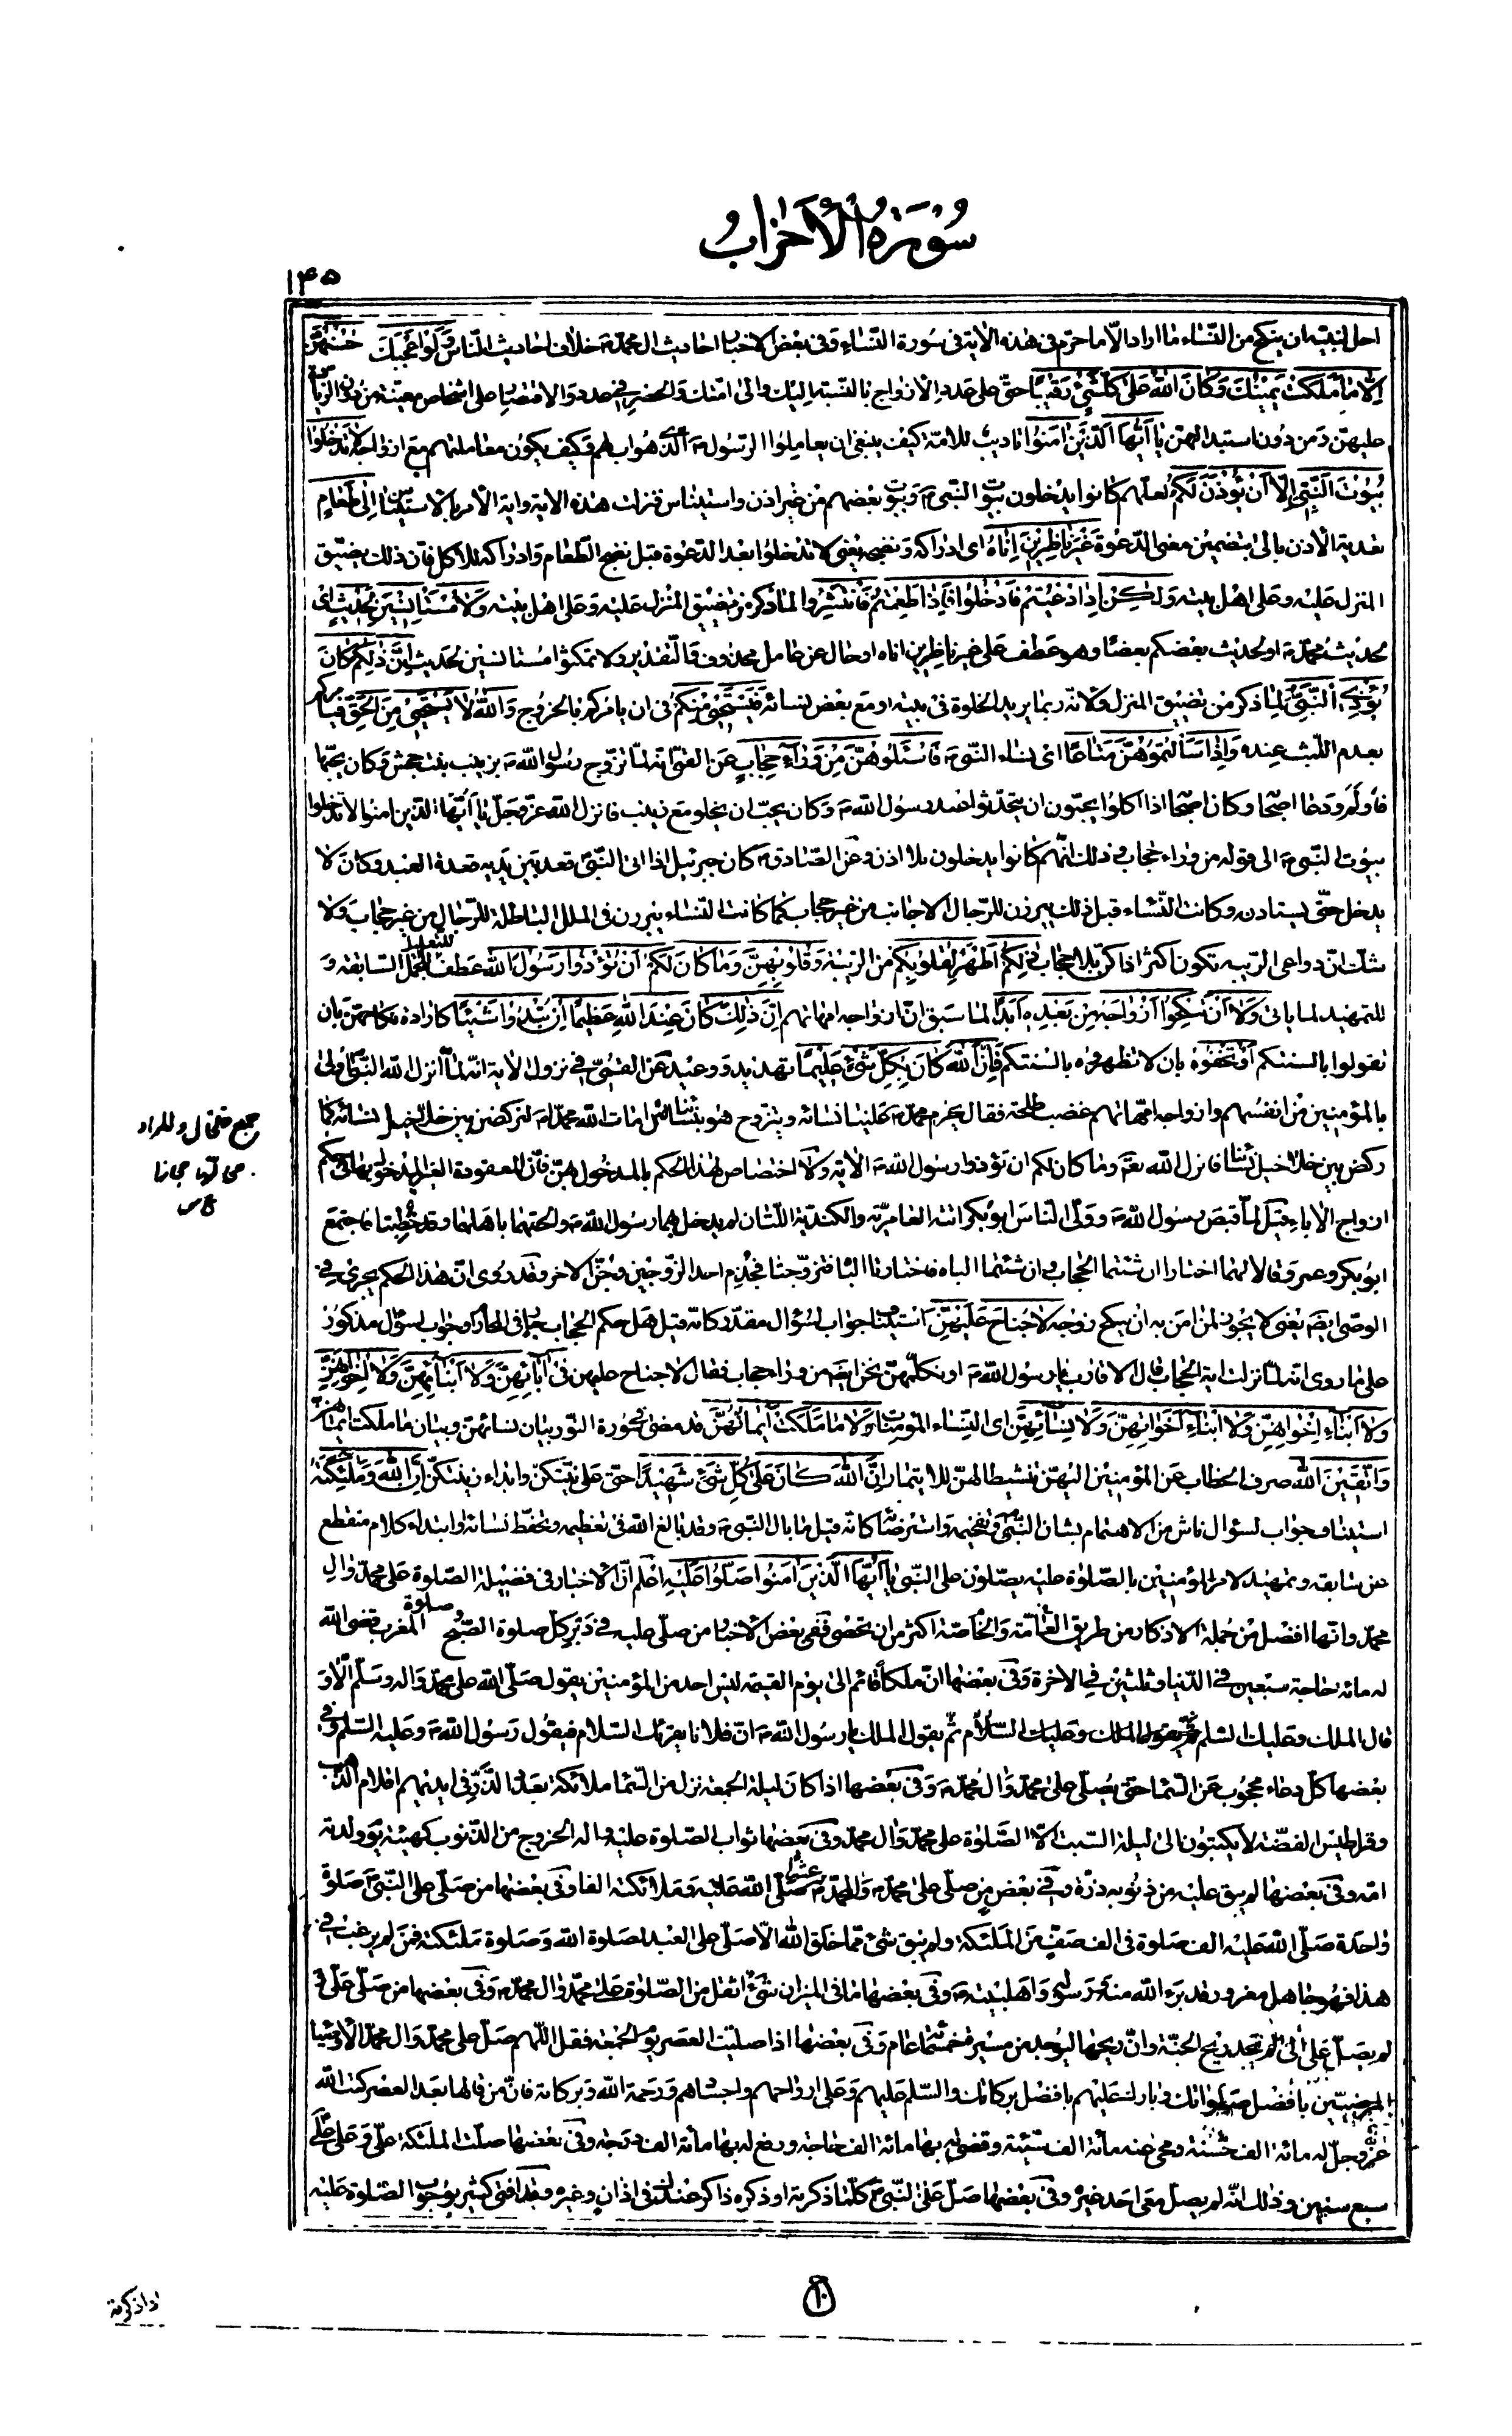 سُورَةُ الْأَحْزَابِ
۱۴۵
احل لنبيّه ان ينكح من النّساء ما اراد الّا ما حرّم فى هذه الاية فى سورة النّساء وفى بعض الاخبار احاديث ال محمّد خلاف احاديث النّاس وَلَوْ اَعْجَبَكَ حُسْنُهُنَّ
اِلَّا مَا مَلَكَتْ يَمِينُكَ وَكَانَ اللهُ عَلَى كُلِّ شَيْءٍ رَقِيبًا حتّى على عدد الازواج بالنّسبة اليك والى امّتك والحصر فى عدد والاقتصار على اشخاص معيّنة من دون الزيادة
عليهنّ ومن دون استبدالهنّ يَا اَيُّهَا الَّذِينَ اٰمَنُوا تاديب للامّة كيف ينبغى ان يعاملوا الرّسول ص الّذى هو اب لهم وكيف يكون معاملتهم مع ازواجه لَا تَدْخُلُوا
بُيُوتَ النَّبِيِّ اِلَّا اَنْ يُؤْذَنَ لَكُمْ لعلّهم كانوا يدخلون بيوت النّبىّ ص وبيوت بعضهم من غير اذن واستيناس فنزلت هذه الاية واية الامر بالاستيناس اِلَى طَعَامٍ
تعدية الاذن بالى لتضمين معنى الدّعوة غَيْرَ نَاظِرِينَ اِنَاهُ اى ادراكه ونضجه يعنى لا تدخلوا بعد الدّعوة قبل نضج الطّعام وادراكه للاكل فانّ ذلك يضيّق
المنزل عليه وعلى اهل بيته وَلَكِنْ اِذَا دُعِيتُمْ فَادْخُلُوا فَاِذَا طَعِمْتُمْ فَانْتَشِرُوا لما ذكر من تضييق المنزل عليه وعلى اهل بيته وَلَا مُسْتَأْنِسِينَ لِحَدِيثٍ اى
لحديث محمّد ص او لحديث بعضكم بعضا وهو عطف على غير ناظرين اناه او حال عن عامل محذوف والتّقدير ولا تمكثوا مستانسين لحديث اِنَّ ذَلِكُمْ كَانَ
يُؤْذِي النَّبِيَّ لما ذكر من تضييق المنزل ولانّه ربما يريد الخلوة فى بيته او مع بعض نسائه فَيَسْتَحْيِي مِنْكُمْ فى ان يامركم بالخروج وَاللهُ لَا يَسْتَحْيِي مِنَ الْحَقِّ فيامركم
بعدم اللّبث عنده وَاِذَا سَاَلْتُمُوهُنَّ مَتَاعًا اى نساء النّبىّ ص فَاسْئَلُوهُنَّ مِنْ وَرَاءِ حِجَابٍ عن القمّىّ انّه لمّا تزوّج رسول الله ص بزينب بنت جحش وكان يحبّها
فاولم ودعا اصحابه وكان اصحابه اذا اكلوا يحبّون ان يتحدّثوا عند رسول الله ص وكان يحبّ ان يخلو مع زينب فانزل الله عزّ وجلّ يا ايّها الّذين امنوا لا تدخلوا
بيوت النّبىّ ص الى قوله من وراء حجاب وذلك انّهم كانوا يدخلون بلا اذن وعن الصّادق ع كان جبرئيل اذا اتى النّبىّ قعد بين يديه قعدة العبد وكان لا
يدخل حتّى يستاذنه وكانت النّساء قبل ذلك يبرزن للرّجال الاجانب من غير حجاب كما كانت النّساء يبرزن فى الملل الباطلة للرّجال من غير حجاب ولا
شكّ انّ دواعى الرّيبة تكون اكثر اذا كنّ بلا حجاب ذَلِكُمْ اَطْهَرُ لِقُلُوبِكُمْ من الرّيبة وَقُلُوبِهِنَّ وَمَا كَانَ لَكُمْ اَنْ تُؤْذُوا رَسُولَ اللهِ عطف للتّعليل للجمل السّابقة و
للتمهيد لما ياتى وَلَا اَنْ تَنْكِحُوا اَزْوَاجَهُ مِنْ بَعْدِهِ اَبَدًا لما سبق انّ ازواجه امّهاتهم اِنَّ ذَلِكَ كَانَ عِنْدَ اللهِ عَظِيمًا اِنْ تُبْدُوا شَيْئًا كارادة نكاحهنّ بان
تقولوا بالسنتكم اَوْ تُخْفُوهُ بان لا تظهروه بالسنتكم فَاِنَّ اللهَ كَانَ بِكُلِّ شَيْءٍ عَلِيمًا تهديد ووعيد عن القمّىّ فى نزول الاية انّه لمّا انزل الله النّبىّ اولى
بالمؤمنين من انفسهم وازواجه امّهاتهم غضب طلحة فقال يحرّم محمّد ص علينا نسائه ويتزوّج هو بنسائنا لئن امات الله محمّدا ص لنركضنّ بين خلاخيل نسائه كما
ركض بين خلاخيل نسائنا فانزل الله تعالى وما كان لكم ان تؤذوا رسول الله ص الاية ولا اختصاص لهذا الحكم بالمدخول بهنّ فانّ المعقودة الغير المدخول بها فى حكم
ازواج الاباء قيل لمّا قبض رسول الله ص وولّى النّاس ابوبكر اتته العامريّة والكنديّة اللّتان لم يدخل بهما رسول الله ص والحقهما باهلهما وقد خطبتا فاجتمع
ابوبكر وعمر وقالا لهما اختارا ان شئتما الحجاب وان شئتما الباه فاختارتا الباه فتزوّجتا فجذم احد الزّوجين وجنّ الاخر وقد روى انّ هذا الحكم يجرى فى
الوصىّ ايضا يعنى لا يجوز لمن امن به ان ينكح زوجه لَا جُنَاحَ عَلَيْهِنَّ استيناف جواب لسؤال مقدّر كانّه قيل هل حكم الحجاب جار فى المحارم او جواب لسؤال مذكور
على ما روى انّه لمّا نزلت اية الحجاب قال الاقارب يا رسول الله ص او نكلّمهنّ نحن ايضا من وراء حجاب فقال لا جناح عليهن فِي اٰبَائِهِنَّ وَلَا اَبْنَائِهِنَّ وَلَا اِخْوَانِهِنَّ
وَلَا اَبْنَاءِ اِخْوَانِهِنَّ وَلَا اَبْنَاءِ اَخَوَاتِهِنَّ وَلَا نِسَائِهِنَّ اى النّساء المؤمنات وَلَا مَا مَلَكَتْ اَيْمَانُهُنَّ قد مضى فى سورة النّور بيان نسائهنّ وبيان ما ملكت ايمانهنّ
وَاتَّقِينَ اللهَ صرف الخطاب عن المؤمنين اليهنّ تنشيطا لهنّ للايتمار اِنَّ اللهَ كَانَ عَلَى كُلِّ شَيْءٍ شَهِيدًا حتّى على نيّتكنّ وابداء زينتكنّ اِنَّ اللهَ وَمَلٰئِكَتَهُ
استيناف جواب لسؤال ناش من الاهتمام بشان النّبىّ وتفخيمه واسترضائه كانّه قيل ما بال النّبىّ ص وقد بالغ الله فى تعظيمه وتحفّظ نسائه او ابتداء كلام منقطع
عن سابقه وتمهيد لامر المؤمنين بالصّلوة عليه يصلّون على النّبىّ يَا اَيُّهَا الَّذِينَ اٰمَنُوا صَلُّوا عَلَيْهِ اعلم انّ الاخبار فى فضيلة الصّلوة على محمّد وال
محمّد وانّها افضل من جملة الاذكار من طريق العامّة والخاصّة اكثر من ان تحصى ففى بعض الاخبار من صلّى عليه فى دبر كلّ صلوة الصّبح وصلوة المغرب قضى الله
له مائة حاجة سبعين فى الدّنيا وثلثين فى الاخرة وفى بعضها انّ ملكا قائم الى يوم القيمة ليس احد من المؤمنين يقول صلّى الله على محمّد واله وسلّم الّا و
قال الملك وعليك السّلام ثمّ يقول الملك يا رسول الله ص انّ فلانا يقرئك السّلام فيقول رسول الله ص وعليه السّلم وفى
بعضها كلّ دعاء محجوب عن السّماء حتّى يصلّى على محمّد وال محمّد ص وفى بعضها اذا كان ليلة الجمعة نزل من السّماء ملائكة بعدد الذّرّ فى ايديهم اقلام الذّهب
وقراطيس الفضّة لا يكتبون الى ليلة السّبت الّا الصّلوة على محمّد وال محمّد وفى بعضها ثواب الصّلوة عليه واله الخروج من الذّنوب كهيئة يوم ولدته
امّه وفى بعضها لم يبق عليه من ذنوبه ذرّة وفى بعض من صلّى على محمّد ص وال محمّد عشرا صلّى الله عليه وملائكته الفا وفى بعضها من صلّى على النّبىّ ص صلوة
واحدة صلّى الله عليه الف صلوة فى الف صفّ من الملئكة ولم يبق شئ ممّا خلق الله الّا صلّى على العبد لصلوة الله وصلوة ملئكته فمن لم يرغب فى
هذا فهو جاهل مغرور قد برء الله منه ورسوله واهل بيته ص وفى بعضها ما فى الميزان شئ اثقل من الصّلوة على محمّد وال محمّد ص وفى بعضها من صلّى علىّ و
لم يصلّ على الى لم يجد ريح الجنّة وانّ ريحها ليوجد من مسيرة خمسمائة عام وفى بعضها اذا صلّيت العصر يوم الجمعة فقل اللّهم صلّ على محمّد وال محمّد الاوصياء
المرضيّين بافضل صلواتك وبارك عليهم بافضل بركاتك والسّلم عليهم وعلى ارواحهم واجسادهم ورحمة الله وبركاته فانّ من قالها بعد العصر كتب الله
عزّ وجلّ له مائة الف حسنة ومحى عنه مائة الف سيّئة وقضى له بها مائة الف حاجة ورفع له بها مائة الف درجة وفى بعضها صلّت الملئكة علىّ وعلى علىّ
سبع سنين وذلك انّه لم يصلّ معى احد غيره وفى بعضها صلّ على النّبىّ ص كلّما ذكرته او ذكره ذاكر عندك فى اذان وغيره وقد افتى كثير بوجوب الصّلوة عليه
۱۰
اذا ذكرته